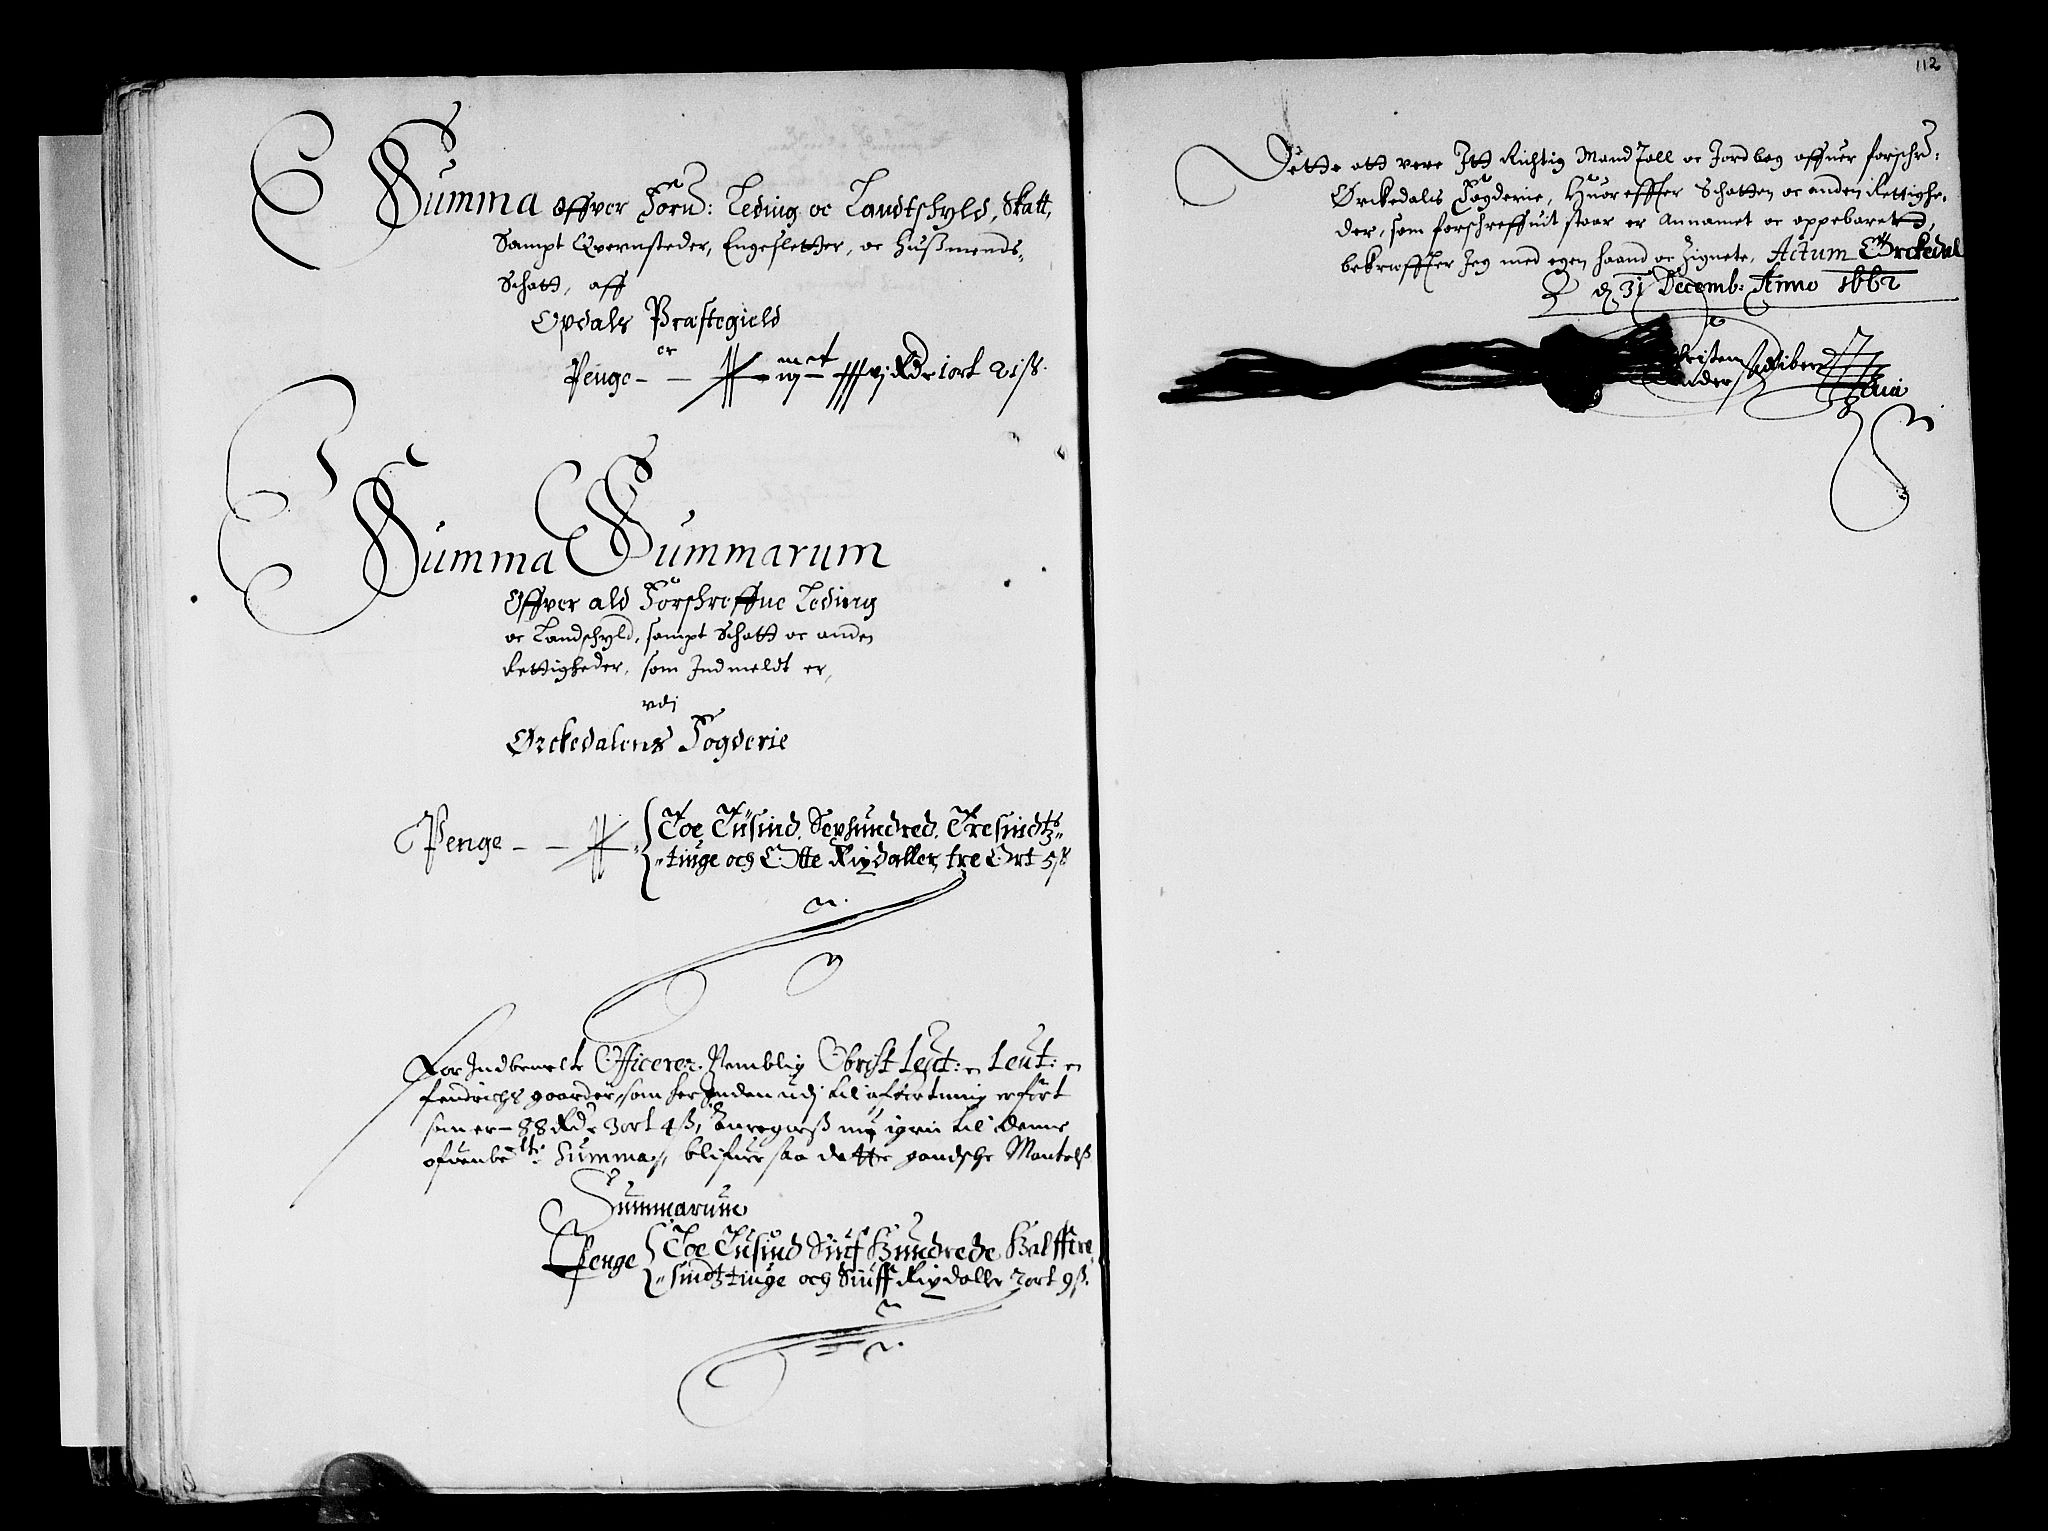 Summa offver Forne: Leding oc Landtschyld, Skatt,
Sampt Qvernsteder, Engesletter, oc Hußmends
Schatt, aff
Opdals Præstegield
er
Penge
Rdr 1 ort 21 ß.
Summa Summarum
Offver ald Forschreffne Leding
oc Landschyld, sampt Schatt oc anden
Rettigheder, som Indmeldt er,
vdj
Ørckedalens Fogderie
Penge
Toe Tusind, Sexhundred, Tresindtz-
tiuge och Otte Rixdaller, tre Ort 5 ß
For Indbemelte Officerer Nemblig Obrist Leut: en Leut: en
fendrichs gaarder, som her Inden udj til afkortning erfört
som er 88 Rdr 3 ort 4 ß, Beregnes nu igien til denne
ofvenbete Summa, blifver saa dette gandsche Mantals
Summarum
Penge
Toe Tusind Siuf Hundrede Halfftre-
sindtztiuge och Siuff Rixdaller 2 ort 9 ß.
112
Dette att vere Itt Richtig Mandtall oc Jordbog offuer forschr:
Ørckedals Fogderie, Huor effter Schatten oc anden Rettighe-
der, som forschreffuit staar er Annamet oc oppebaaret,
bekreffter Jeg med egen haand oc Zignete, Actum Ørckedal
d 31 Decemb: Anno 1662